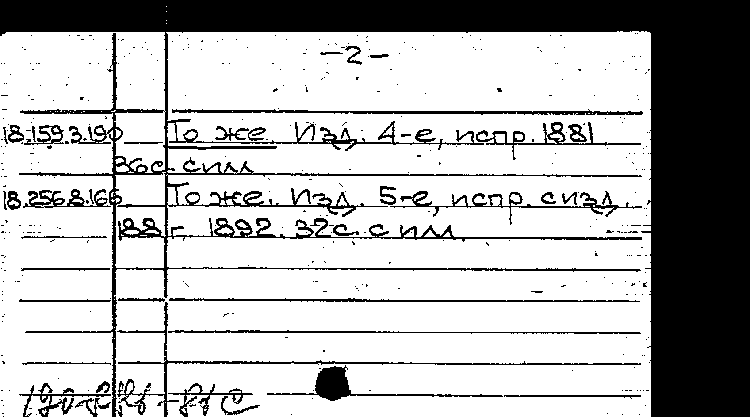 -2-
18.159.3.190 То же. Изд. 4-е, испр. 1881
36с. с илл
18.256.8.166. То же. Изд. 5-е, испр. с изд.
188 г. 1892. 32с. с илл.